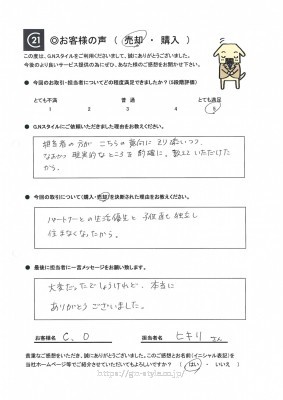 21
◎お客様の声（ 売却 ・ 購入 ）
この度は、G.Nスタイルをご利用くださいまして、誠にありがとうございました。
今後のより良いサービス提供の為にぜひ、あなた様のご感想をお聞かせ下さい。
● 今回のお取引・担当者についてどの程度満足できましたか？（5段階評価）
とても不満 普通 とても満足
1 2 3 4 5
● G.Nスタイルにご依頼いただきました理由をお教えください。
担当者の方が こちらの意向に より添いつつ、
なおかつ 現実的なところを 的確に 教えていただけた
から。
● 今回の取引について（購入・売却）を決断された理由をお教えください。
パートナーとの生活優先と 子供達も独立し
住まなくなったから。
● 最後に担当者に一言メッセージをお願い致します。
大変だったでしょうけれど、本当に
ありがとうございました。
お客様名 C. O 担当者名 ヒキリ さん
貴重なご感想をいただき、誠にありがとうございました。このご感想とお名前（イニシャル表記）を
当社ホームページ等でご紹介させていただいてもよろしいですか？ （ はい ・ いいえ ）
https://gn-style.co.jp/